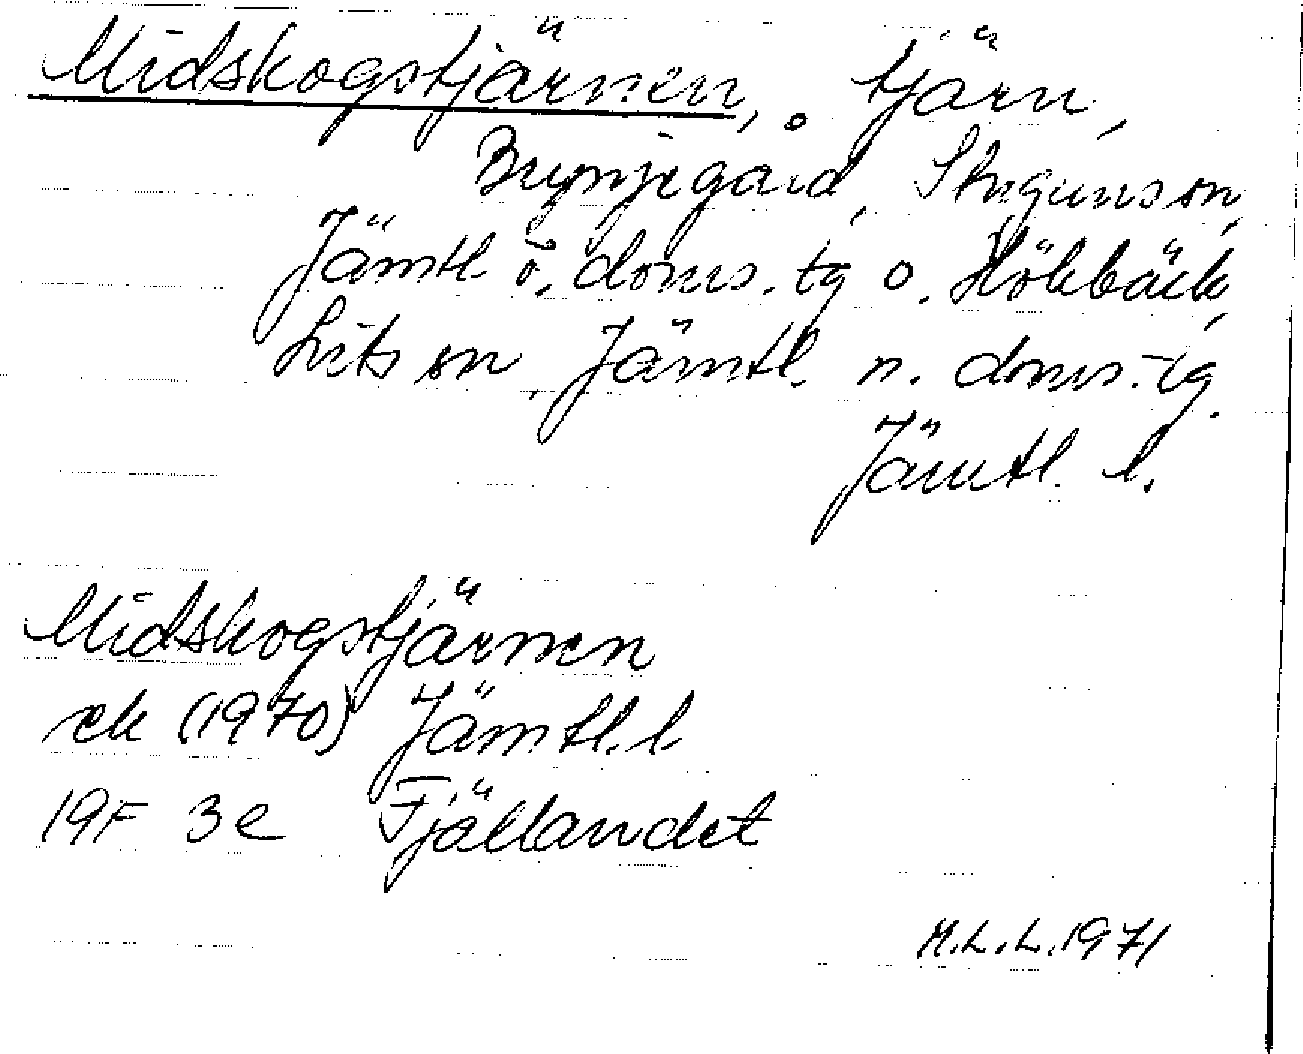 Midskogstjärnen, tjärn,
Brynjegård, Stuguns sn,
Jämtl. ö. doms. tg o. Hökbäck,
Lits sn, Jämtl. n. doms. tg.
Jämtl. l.
Midskogstjärnen
ek (1970) Jämtl. l.
19F 3e Fjällandet
M.L.L. 1971